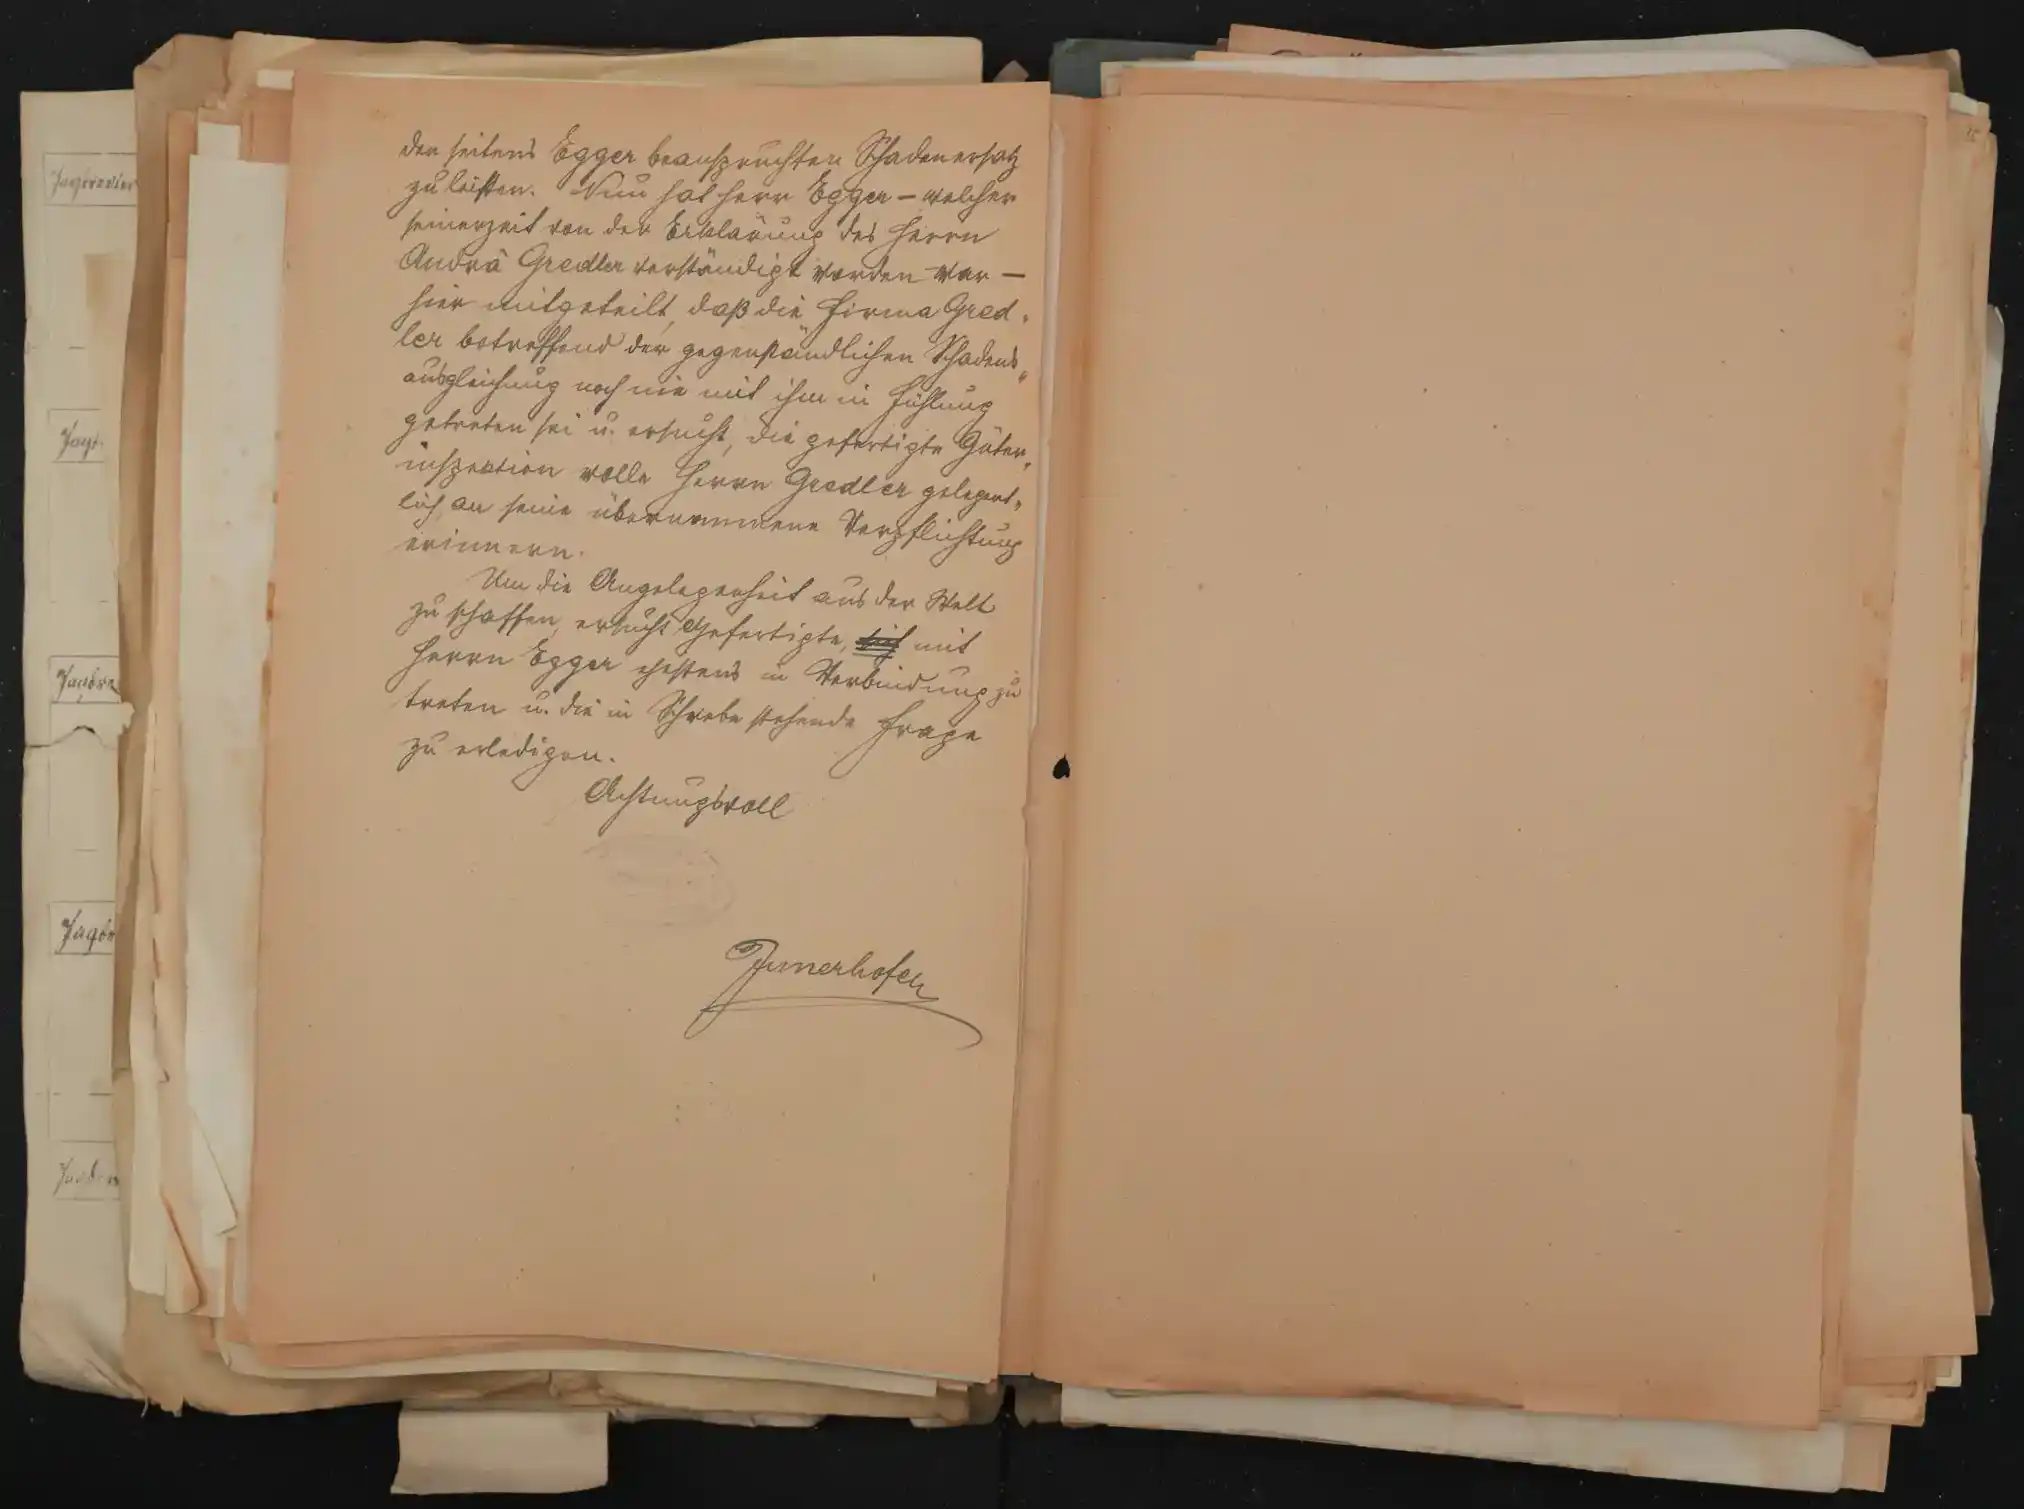 den seitens Egger beanspruchten Schadenersatz
zu leisten. Nun hat Herr Egger – welcher
seinerzeit von der Erklärung des Herrn
Andrä Gredler verständigt worden war –
hier mitgeteilt, daß die Firma Gred-
ler betreffend der gegenständlichen Schadens-
ausgleichung noch nie mit ihm in Fühlung
getreten sei u. ersucht, die gefertigte Güter-
inspektion wolle Herrn Gredler gelegent-
lich an seine übernommene Verpflichtung
erinnern.
Um die Angelegenheit aus der Welt
zu schaffen, ersucht Gefertigte, sich mit
Herrn Egger ehestens in Verbindung zu
treten u. die in Schwebe stehende Frage
zu erledigen.
Achtungsvoll
Innerhofer
Jagdrevier
Jagd-
Jagdre
Jagdr